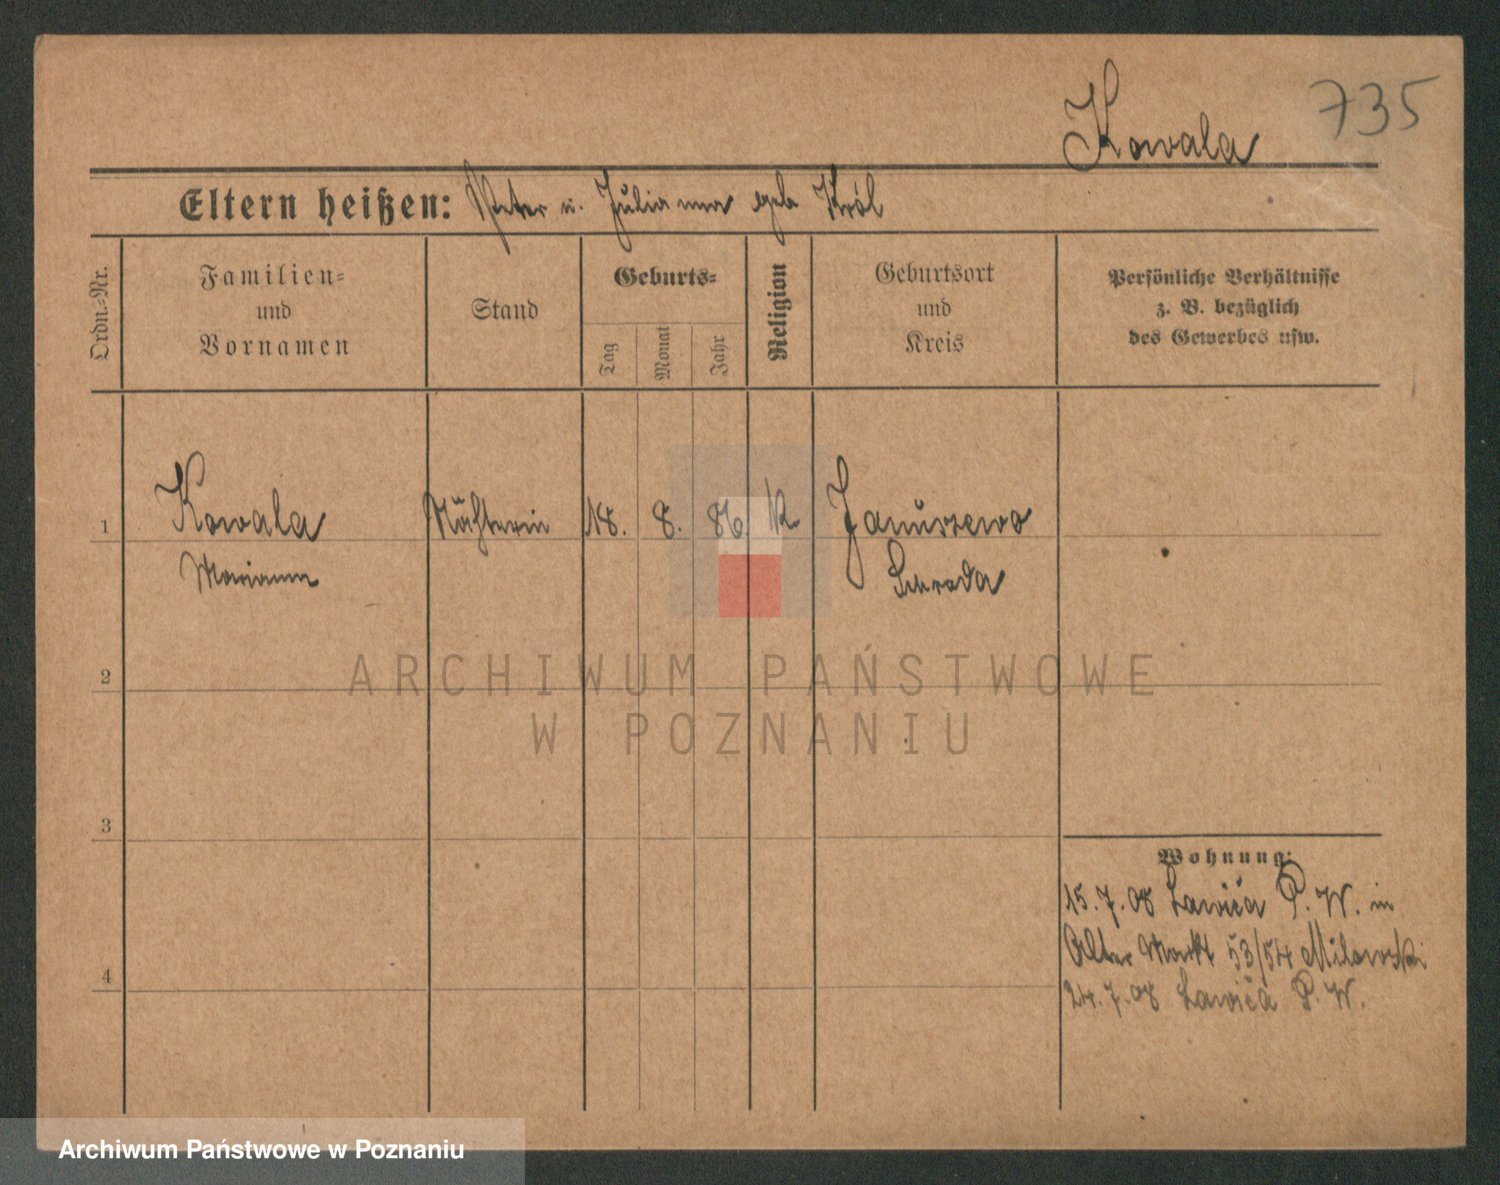 735
Kowala
Eltern heißen: Peter u. Julianna geb Król
Ordn.-Nr.
Familien-
und
Vornamen
Stand
Geburts-
Tag
Monat
Jahr
Religion
Geburtsort
und
Kreis
Persönliche Verhältnisse
z. B. bezüglich
des Gewerbes usw.
1 Kowala Nähterin 18. 8. 86 k Januszewo
Marianna Schroda
ARCHIWUM PAŃSTWOWE
W POZNANIU
2
3
4
Wohnung:
15.7.08 Lawica P. W. in
Alter Markt 53/54 Milewski
24.7.08 Lawica P. W.
Archiwum Państwowe w Poznaniu